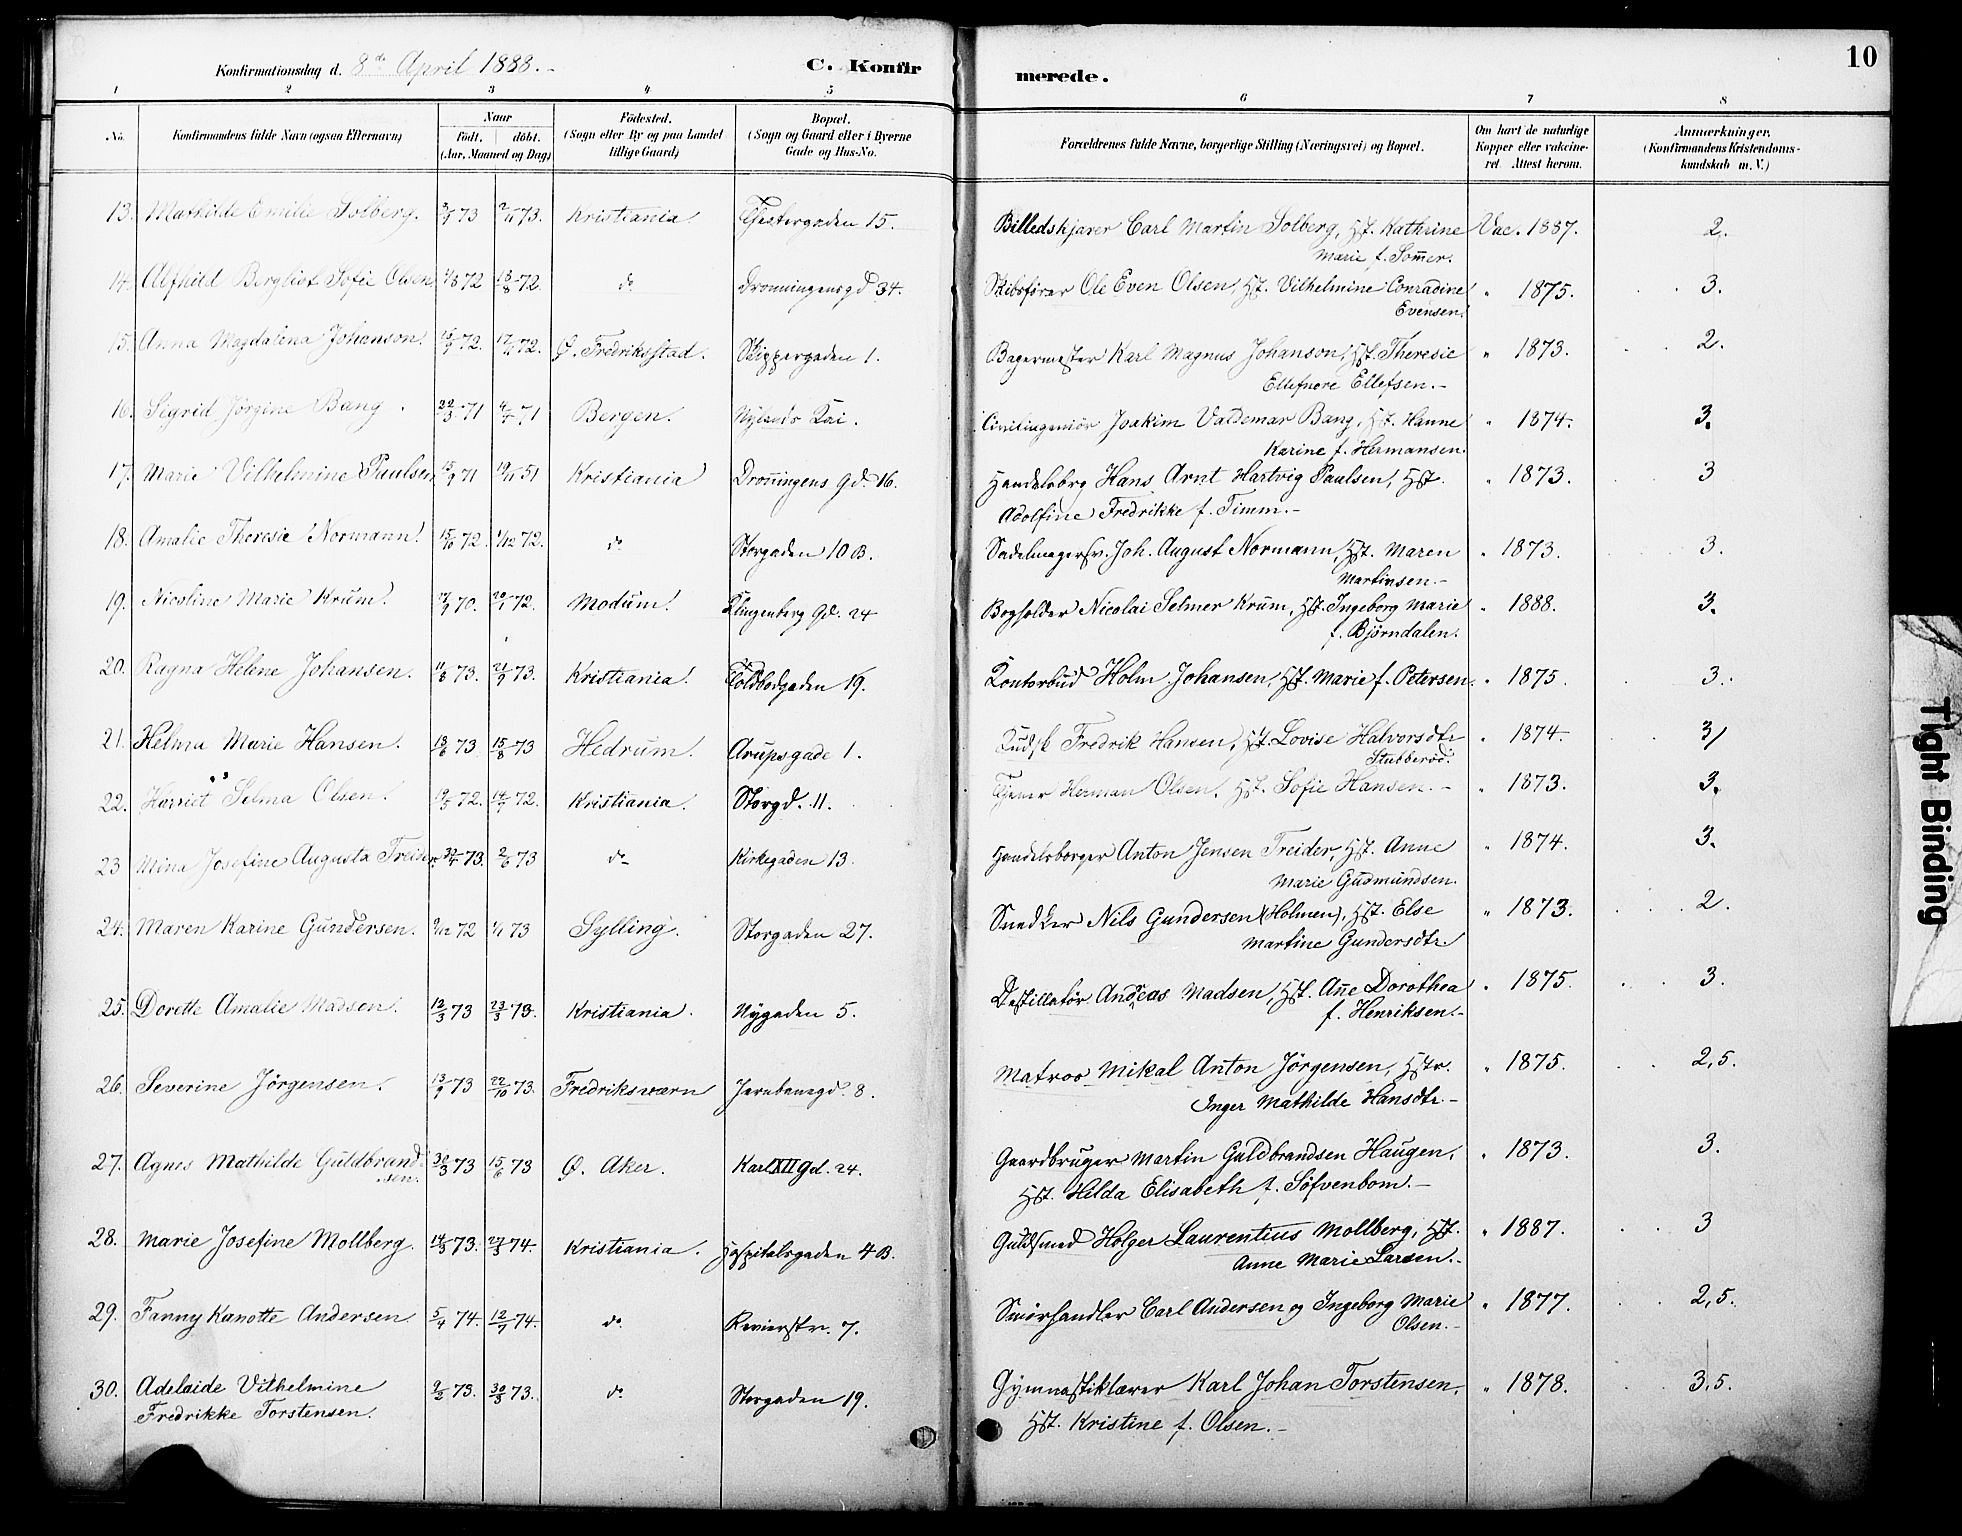 Konfirmationsdag d. 8de April 1888.-
C. Konfir
merede.
10
1 2 3 4 5 6 7 8
No.
Konfirmandens fulde Navn (ogsaa Efternavn)
Naar
Födt. döbt.
(Aar, Maaned og Dag)
Födested.
(Sogn eller By og paa Landet
tillige Gaard)
Bopæl.
(Sogn og Gaard eller i Byerne
Gade og Hus-No.
Forældrenes fulde Navne, borgerlige Stilling (Næringsvei) og Bopæl.
Om havt de naturlige
Kopper eller vakcine-
ret Attest herom.
Anmærkninger.
(Konfirmandens Kristendoms-
kundskab m. V.)
13. Mathilde Emilie Solberg. 73 73. Kristiania 15. Billedskjærer Carl Martin Solberg, Hst. Kathrine Vac. 1887. 2.
Marie f. Sommer.
14. Alfhild Bergliot Sofie Olsen 72 18/8 72. do Dronningensgd 34. Skibsfører Ole Even Olsen, Hst. Vilhelmine Conradine " 1875. 3.
Evensen.
15. Anna Magdalena Johanson. 72. 72. Ø. Fredriksstad. Skippergaden 1. Bagermester Karl Magnus Johanson, Hst. Theresie " 1873. 2.
Ellefnore Ellefsen.-
16. Sigrid Jörgine Bang. 22/3 71 71 Bergen. Nylands Kai. Civilingeniör Joakim Valdemar Bang, Hst. Hanne " 1874. 3.
Karine f. Hermansen.
17. Marie Vilhelmine Paulsen 15/9 71 19/11 51 Kristiania Dronningens Gd. 16. Handelsbrg Hans Arnt Hartvig Paulsen, Hst. " 1873. 3
Adolfine Fredrikke f. Timm.-
18. Amalie Theresie Normann. 15/10 72. 1/12 72. do Storgaden 10 B. Sadelmagersv. Joh. August Normann, Hst. Maren " 1873. 3.
Martinsen.-
19. Nicoline Marie Krum. 70. 20/1 72. Modum. Klingenberg Gd. 24 Bogholder Nicolai Selmer Krum, Hst. Ingeborg Marie " 1888. 3.
f. Björndalen.
20. Ragna Helene Johansen. 73. 21/9 73. Kristiania. Toldbodgaden 19. Kontorbud Holm Johansen, Hst. Marie f. Petersen. " 1875. 3.
21. Helma Marie Hansen. 73. 15/8 73 Hedrum. Arupsgade 1. Kudsk Fredrik Hansen, Hst. Lovise Halvorsdtr " 1874. 3
Stubberöd.
22. Harriet Selma Olsen. 72. 72. Kristiania. Storgd. 11. Tjener Herman Olsen, Hst. Sofie Hansen.- " 1873. 3.
23 Mina Josefine Augusta Treider 73. 2/6 73 do Kirkegaden 13. Handelsborger Anton Jensen Treider, Hst. Anne " 1874. 3.
Marie Gudmundsen.
24. Maren Karine Gundersen. 72 73 Sylling. Storgaden 27. Snedker Nils Gundersen (Holmen), Hst. Else " 1873. 2.
Martine Gundersdtr.
25. Dorette Amalie Madsen. 12/3 73 23/3 73. Kristiania. Nygaden 5. Destillatör Andreas Madsen, Hst. Ane Dorothea " 1875. 3.
f. Henriksen.-
26. Severine Jörgensen. 13/9 73 22/10 73. Fredriksværn Jernbanegd. 8. Matros Mikal Anton Jörgensen, Hstr. " 1875. 2,5.
Inger Mathilde Hansdtr.-
27. Agnes Mathilde Guldbrand- 30/3 73 15/6 73 Ø. Aker. Karl XII Gd. 24. Gaardbruger Martin Guldbrandsen Haugen, " 1873. 3.
sen. Hst. Hilda Elisabeth f. Söfvenbom.-
28. Marie Josefine Mollberg. 73. 74. Kristiania. Hospitalsgaden 4 B. Guldsmed Holger Laurentius Mollberg, Hst. " 1887. 3
Anne Marie Larsen.-
29. Fanny Kanotte Andersen 5/4 74. 12/7 74. do Revierstr. 7. Smörhandler Carl Andersen og Ingeborg Marie " 1877. 2,5.
Olsen.-
30. Adelaide Vilhelmine 9/2 73. 73. do Storgaden 19. Gymnastiklærer Karl Johan Torstensen, " 1878. 3,5.
Fredrikke Torstensen. Hst. Kristine f. Olsen.-
Tight Binding